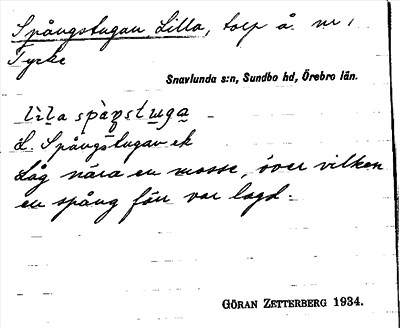 Spångstugan, Lilla, torp å. nr 1
Tycke
Snavlunda s:n, Sundbo hd, Örebro län.
lìla spàŋstuga
L. Spångstugan ek
Låg nära en mosse, över vilken
en spång förr var lagd.
GÖRAN ZETTERBERG 1934.